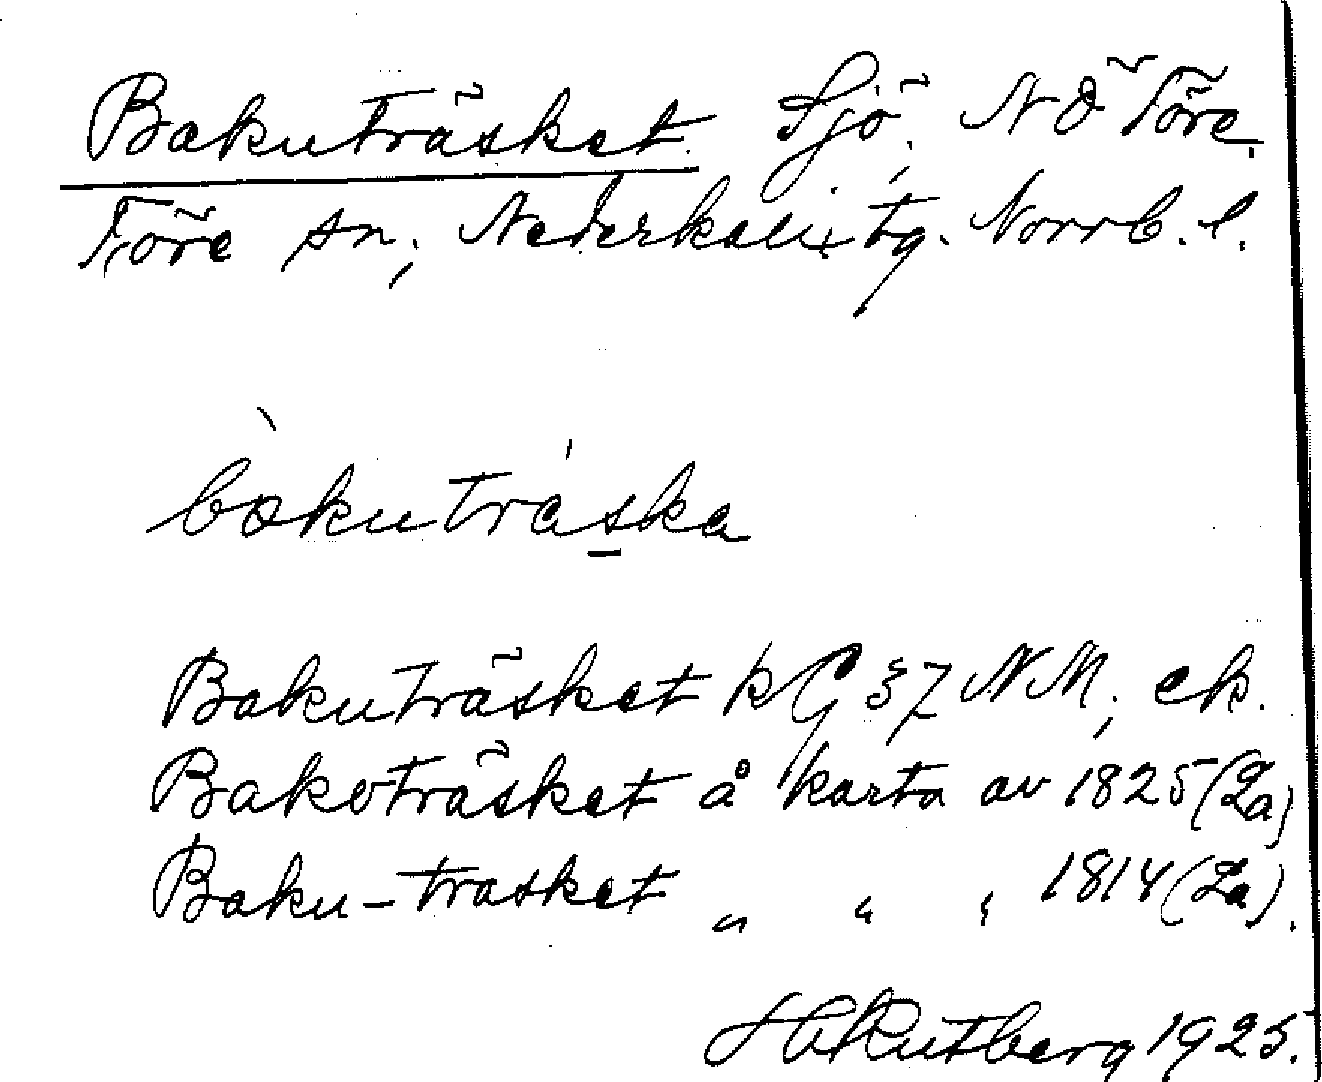 Bakuträsket. Sjö, NÖ Töre.
Töre sn, Nederkalix tg. Norrb. l.
bakuträska
Bakuträsket kG 37 NM, ek.
Bakoträsket å karta av 1825 (La)
Baku-trasket " " " 1814 (La).
H Rutberg 1925.